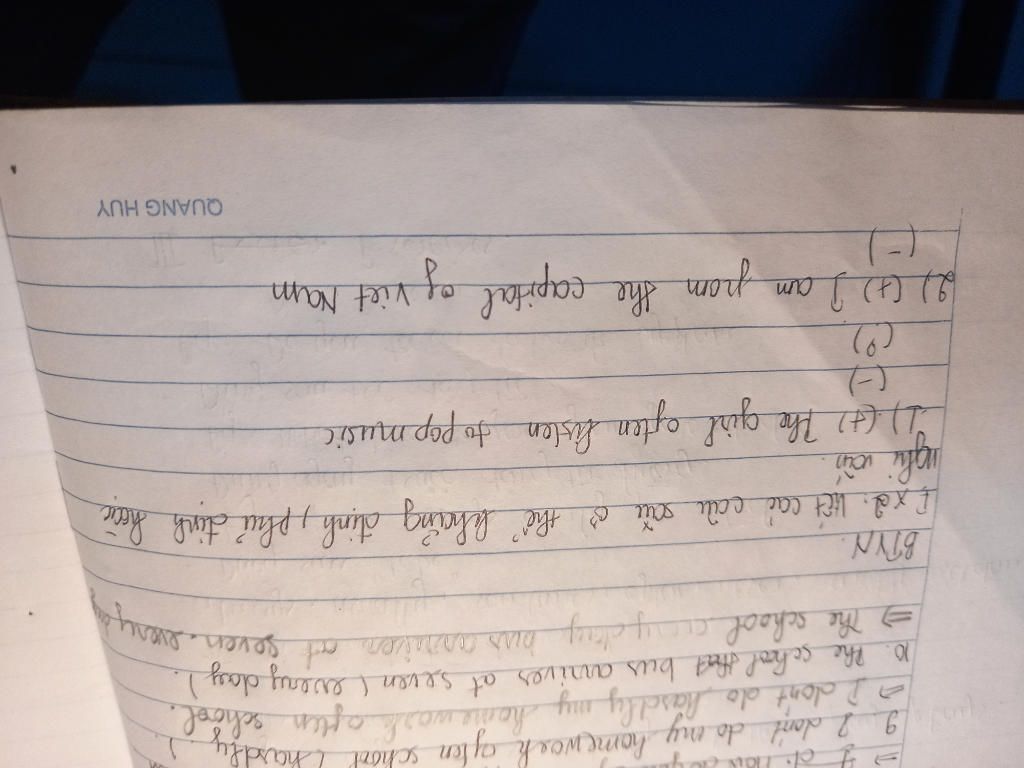 9 I don't do my homework after school (hardly)
⇒ I don't do hardly my homework after school.
10. The school bus arrives at seven (every day).
⇒ The school everyday bus arrives at seven. every day
BTVN.
Ex2. Viết các câu sau ở thể khẳng định, phủ định hoặc
nghi vấn.
1) (+) The girl often listen to pop music
(-)
(?)
2) (+) I am from the capital of Viet Nam
(-)
QUANG HUY